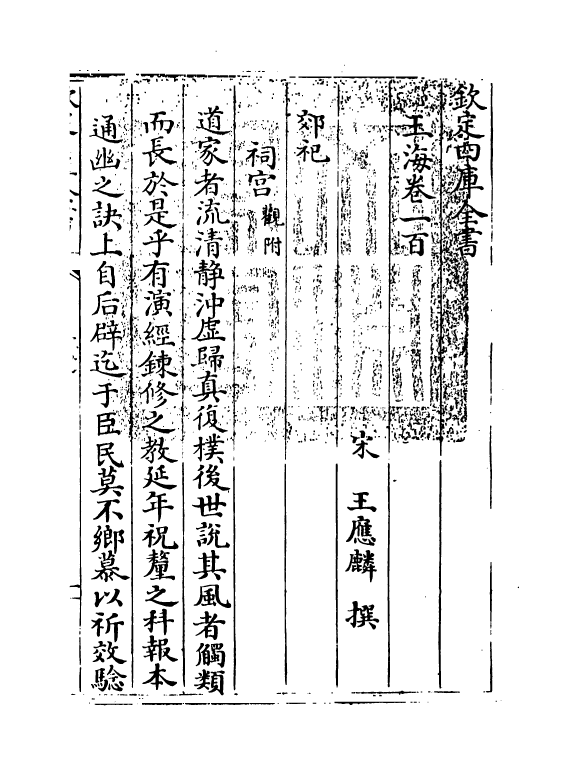 欽定四庫全書
玉海卷一百
宋 王應麟 撰
郊祀
祠宫觀附
道家者流清静沖虚歸真復樸後世説其風者觸類
而長於是乎有演經錬修之教延年祝釐之科報本
通幽之訣上自后辟迄于臣民莫不鄉慕以祈效騐